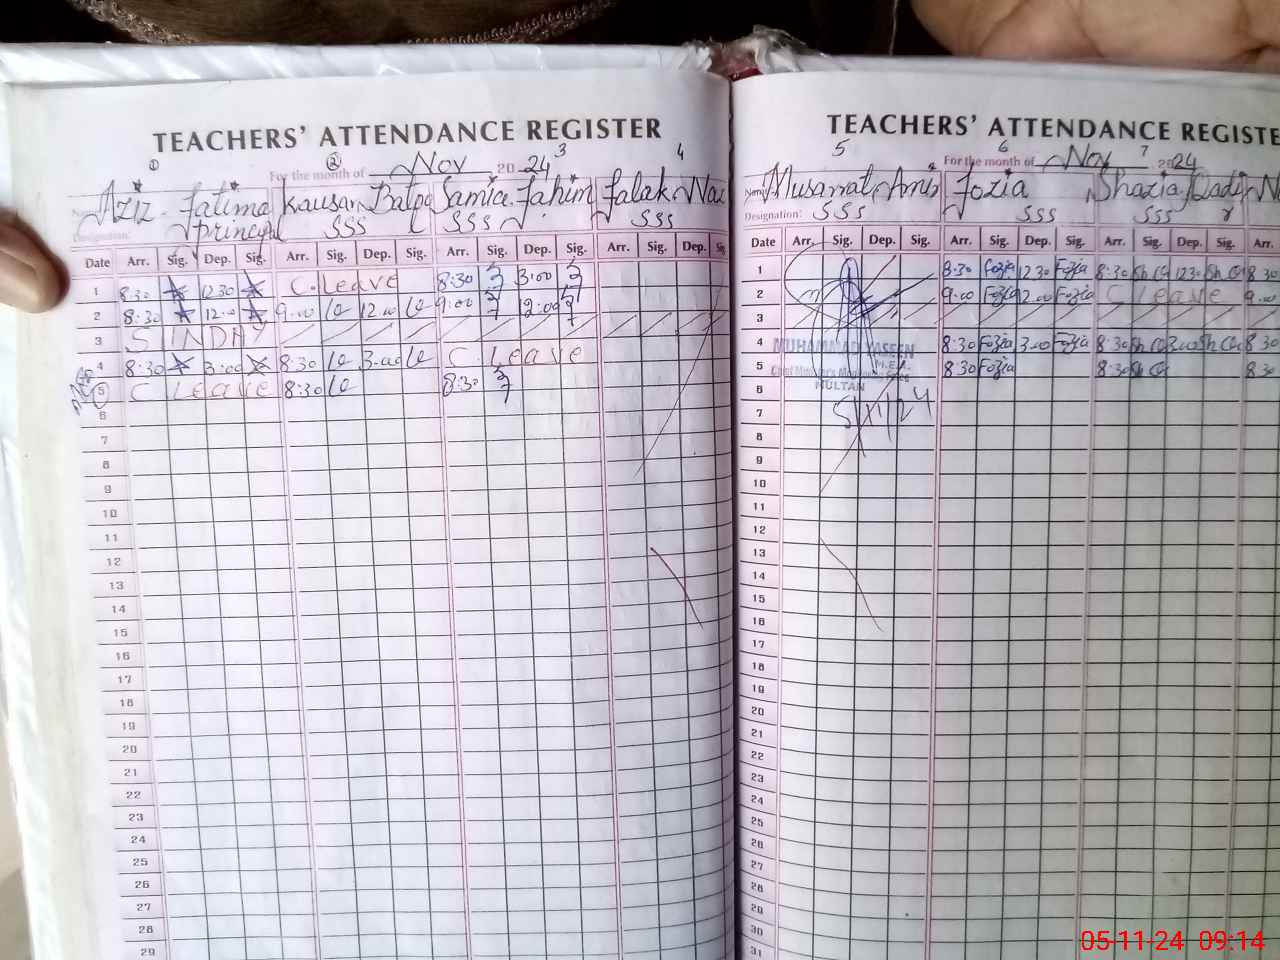 TEACHERS' ATTENDANCE REGISTER
① ② 3 4
For the month of Nov 20 24
Aziz Fatima Kausar Samia Fahim Falak Naz
Designation: principal SSS SSS SSS
Date Arr. Sig. Dep. Sig. Arr. Sig. Dep. Sig. Arr. Sig. Dep. Sig. Arr. Sig. Dep. Sig
1 8:30 12 30 C. Leave 8:30 3:00
2 8:30 12:00 9:00 12:00 9:00 12:00
3 SUNDAY
4 8:30 3:00 8:30 3:00 C. Leave
5 C Leave 8:30 8:30
6
7
8
9
10
11
12
13
14
15
16
17
18
19
20
21
22
23
24
25
26
27
28
29
TEACHERS' ATTENDANCE REGISTE
5 6 7
For the month of Nov 20 24
Name Musarrat Fozia Shazia Qadir N
Designation: SSS SSS SSS
Date Arr. Sig. Dep. Sig. Arr. Sig. Dep. Sig. Arr. Sig. Dep. Sig. Arr.
1 8:30 Fozia 12 30 Fozia 8:30 12 30 8 30
2 9:00 Fozia 12:00 Fozia C Leave 9:00
3
4 8:30 Fozia 3:00 Fozia 8:30 3:00 8 30
5 8 30 Fozia 8:30 8 30
MUHAMMAD YASEEN
M.E.A.
MULTAN
5/11/24
6
7
8
9
10
11
12
13
14
15
16
17
18
19
20
21
22
23
24
25
26
27
28
29
30
31
05-11-24 09:14